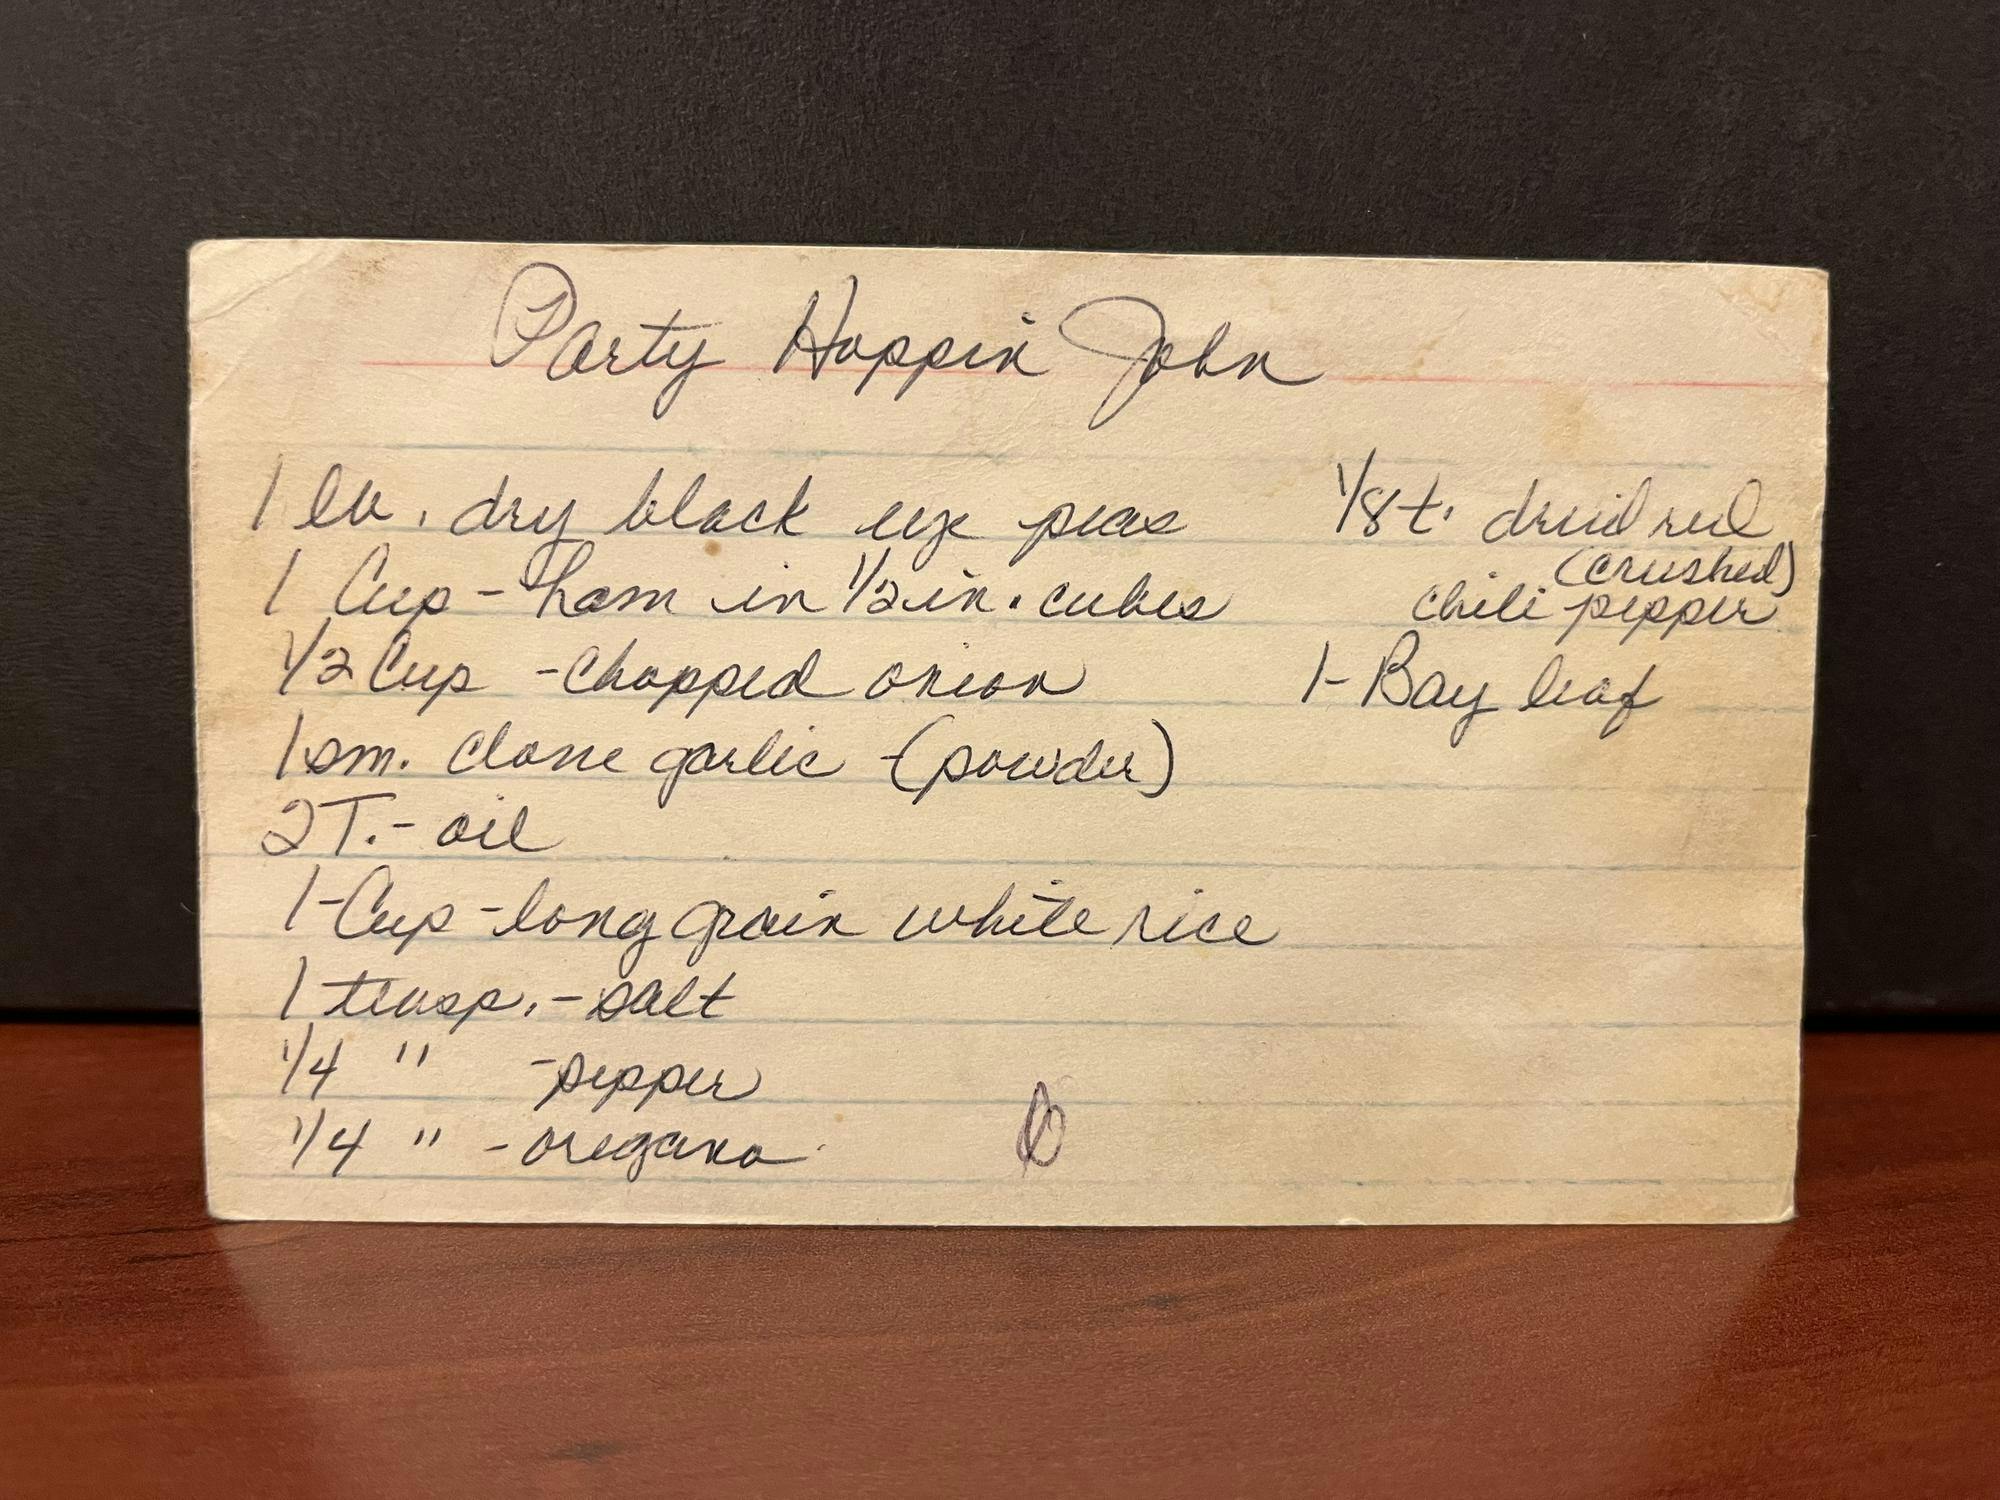 Party Hoppin John
1 lb. dry black eye peas
1 Cup - ham in 1/2 in. cubes
1/2 Cup - chopped onion
1 sm. clove garlic - (powder)
2T. - oil
1-Cup - long grain white rice
1 teasp. - salt
1/4 " - pepper
1/4 " - oregano
1/8 t. dried red
(crushed)
chili pepper
1 - Bay leaf